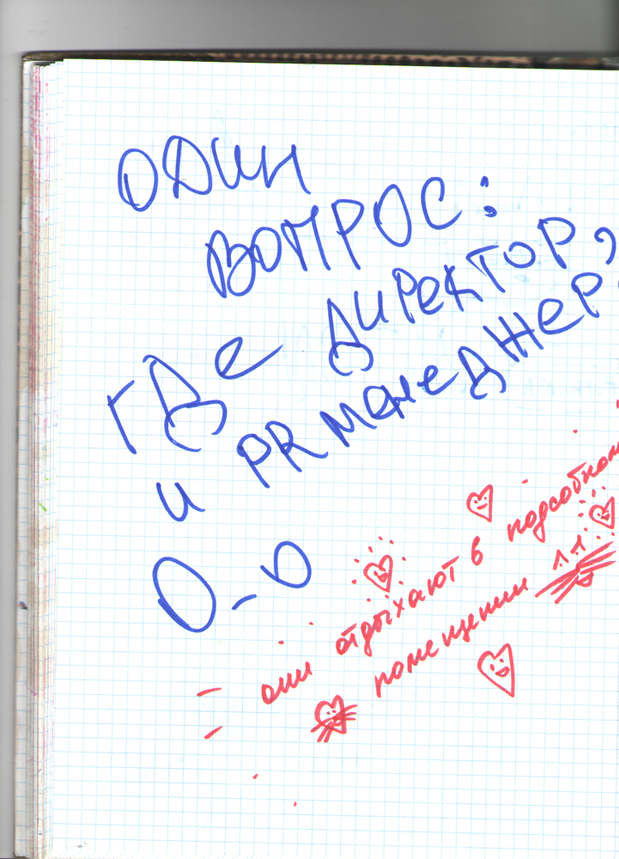 один
вопрос:
где директор,
и PR менеджер.
О_О
они отдыхают в подсобном
помещении ^^